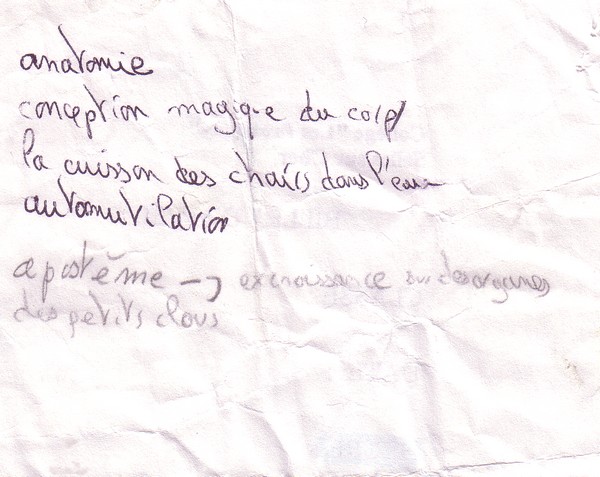 anatomie
conception magique du corps
la cuisson des chairs dans l'eau
automutilation
apostème → excroissance sur des organes
des petits clous